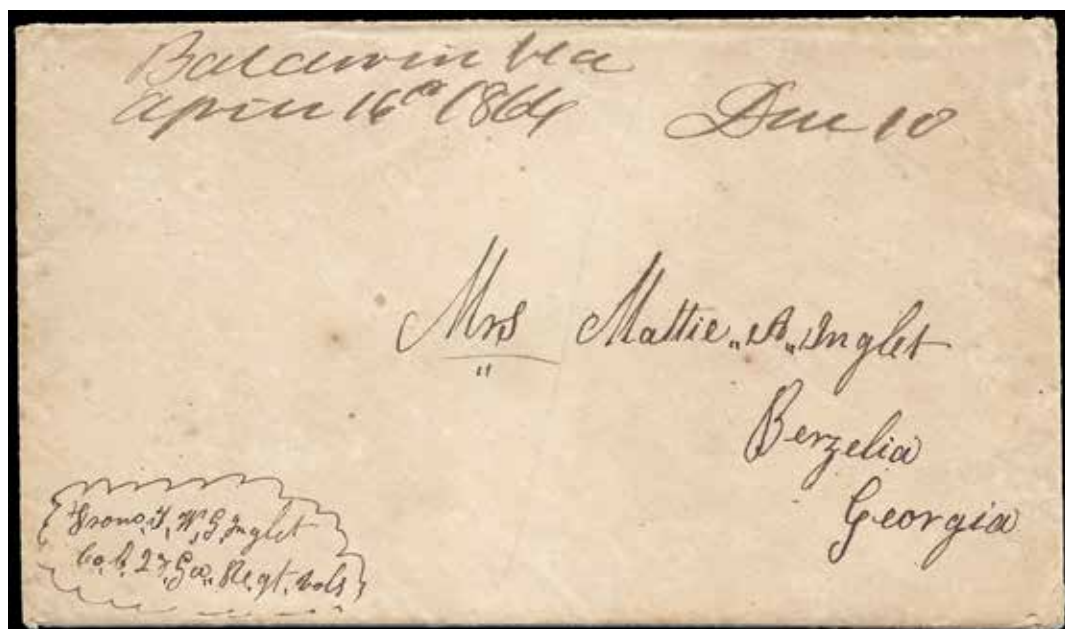 Baldwin Fla
April 16th 1864 Due 10
Mrs Mattie,, A,, Inglet
Berzelia
Georgia
From, W, G, Inglet
Co, C, 27, Ga,, Regt, Vols